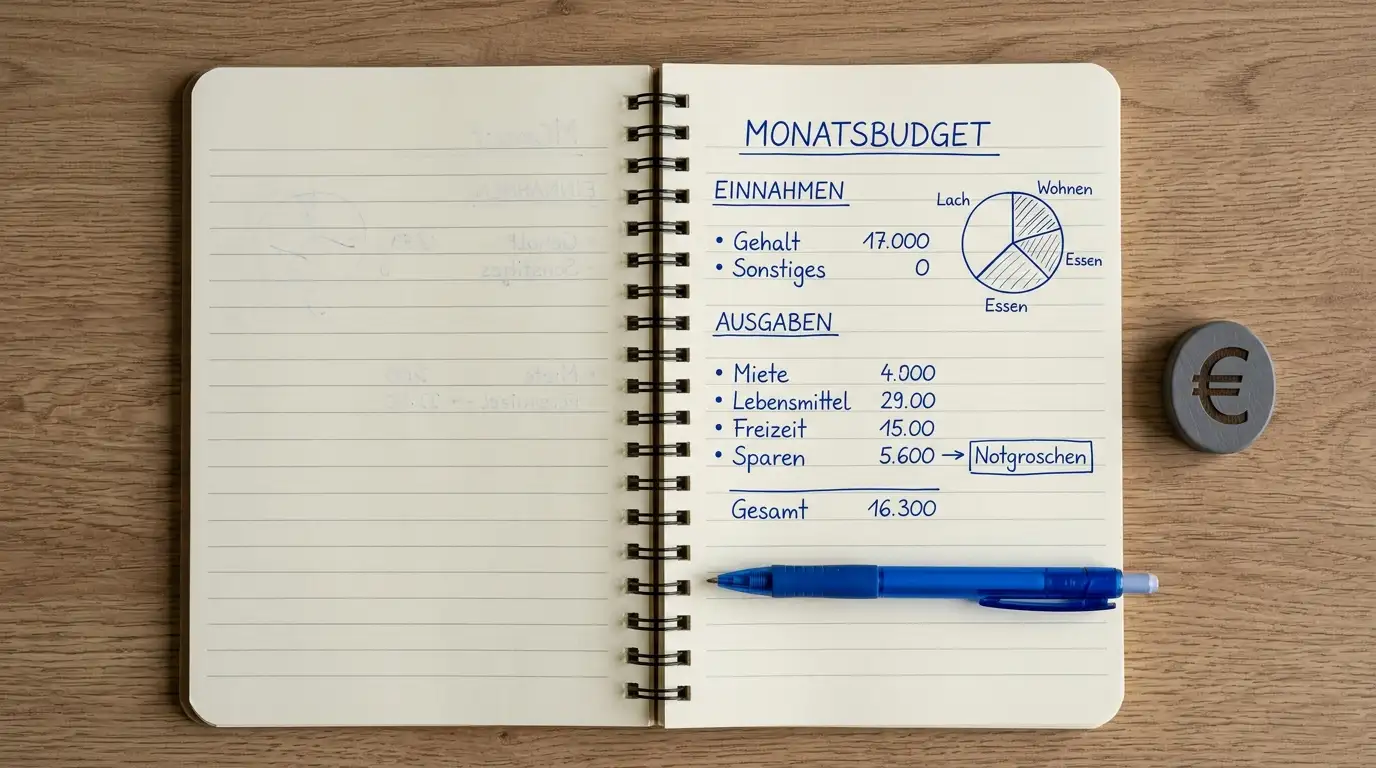 MONATSBUDGET
EINNAHMEN
• Gehalt 17.000
• Sonstiges 0
Lach
Wohnen
Essen
Essen
AUSGABEN
• Miete 4.000
• Lebensmittel 29.00
• Freizeit 15.00
• Sparen 5.600 → Notgroschen
Gesamt 16.300
€